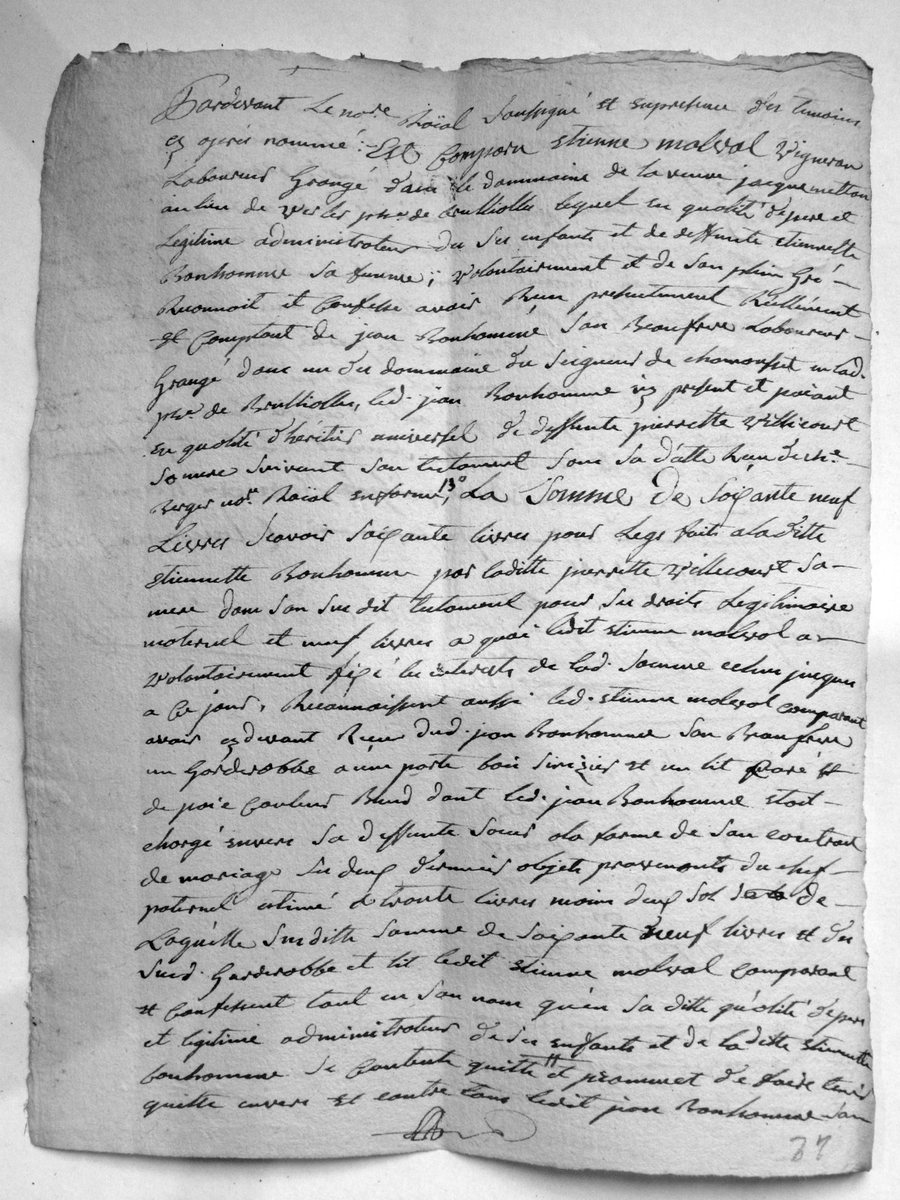 Pardevant Le nore Roïal Soussigné et enpresence des temoins
cy après nommé : Est Comparu Etienne malval Vigneron
Laboureur Grangé dans le dommaine de la veuve jacquemetton
au lieu de prse de Brulliolles lequel en qualité de pere et
Legitime administrateur de ses enfants et de deffunte Etiennette
Bonhomme sa femme ; Volontairement et de son plein Gré –
Reconnoit et Confesse avoir Reçu presentement Reellement
et Comptant de jean Bonhomme son Beaufrere Laboureur –
Grangé dans un des dommaine du Seigneur de chamousset en lad.
prse de Brulliolles, led. jean Bonhomme icy present et paiant
en qualité d'héritier universel de deffunte pierrette Villecourt
sa mere suivant son testament sous sa datte Reçu de me –
Berger nore Roïal en forme, 13° La Somme de Soixante neuf
Livres Scavoir Soixante livres pour Legs faits a laditte
Etiennette Bonhomme par laditte pierrette Villecourt sa –
mere dans son susdit testament pour ses droits Legitimaire
maternel et neuf livres a quoi ledit Etienne malval a –
volontairement fixé les interets de lad. somme echus jusques
a Ce jour, Reconnoissant aussi led. Etienne malval comparant
avoir cy devant Reçu dud. jean Bonhomme son Beaufrere
un Garderobbe a une porte bois Sirizier et un lit Garé et
de poie Couleur dont led. jean Bonhomme etoit –
chargé envers sa deffunte Sœur a la forme de son contrat
de mariage ses deux derniers objets provenants du chef –
paternel estimé a trante livres moins deux sol de –
Laquelle Susditte Somme de Soixante neuf livres et des
Susd. Garderobbe et lit ledit Etienne malval comparant
et Confessant tant en son nom qu'en sa ditte qualité de pere
et legitime administrateur de ses enfants et de laditte Etiennette
bonhomme se Contente quitte et promet de faire tenir
quitte envers et contre tous ledit jean Bonhomme son
37